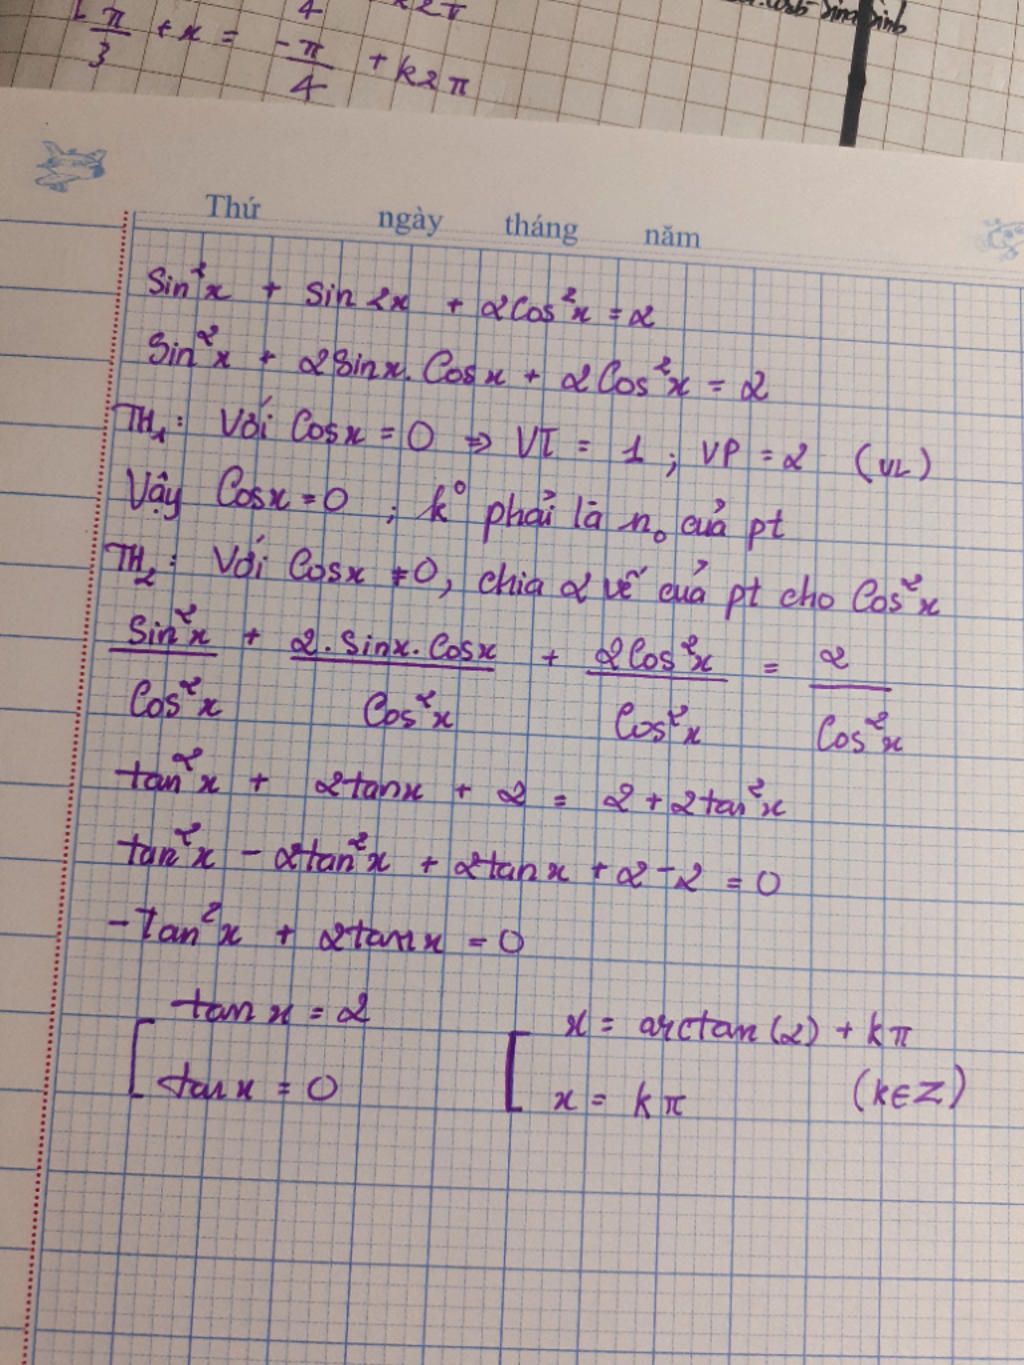 π/3 + x = -π/4 + k2π
Thứ ngày tháng năm
Sin²x + Sin 2x + 2Cos²x = 2
Sin²x + 2Sinx.Cosx + 2Cos²x = 2
TH₁: Với Cosx = 0 => VT = 1 ; VP = 2 (VL)
Vậy Cosx = 0 ; k° phải là n₀ của pt
TH₂: Với Cosx ≠ 0, chia 2 vế của pt cho Cos²x
Sin²x/Cos²x + 2.Sinx.Cosx/Cos²x + 2Cos²x/Cos²x = 2/Cos²x
tan²x + 2tanx + 2 = 2 + 2tan²x
tan²x - 2tan²x + 2tanx + 2 - 2 = 0
-Tan²x + 2tanx = 0
[ tan x = 2 [ x = arctan(2) + kπ
tan x = 0 x = kπ (k∈Z)